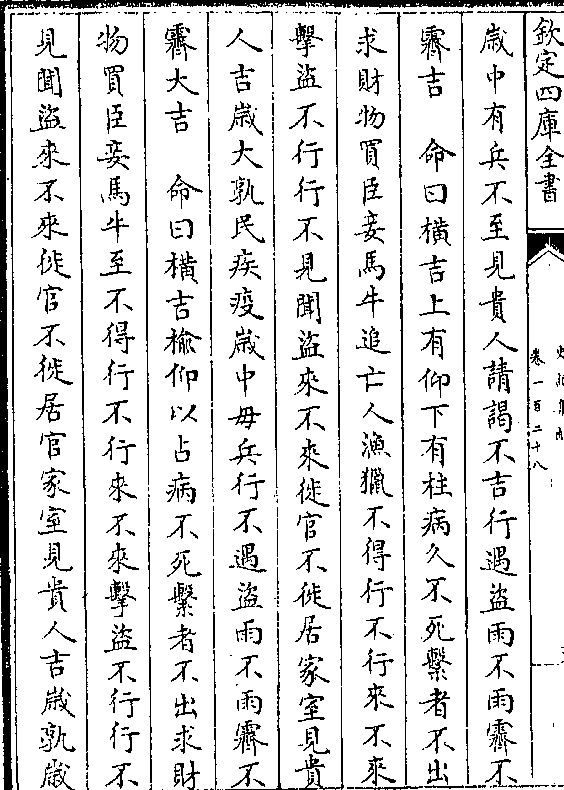 欽定四庫全書
卷一百二十八
嵗中有兵不至見貴人請謁不吉行遇盜雨不雨霽不
霽吉　命曰橫吉上有仰下有柱病久不死繫者不出
求財物買臣妾馬牛追亡人漁獵不得行不行來不來
擊盜不行行不見聞盜來不來徙官不徙居家室見貴
人吉嵗大孰民疾疫嵗中毋兵行不遇盜雨不雨霽不
霽大吉　命曰橫吉榆仰以占病不死繫者不出求財
物買臣妾馬牛至不得行不行來不來擊盜不行行不
見聞盜來不來徙官不徙居官家室見貴人吉嵗孰嵗